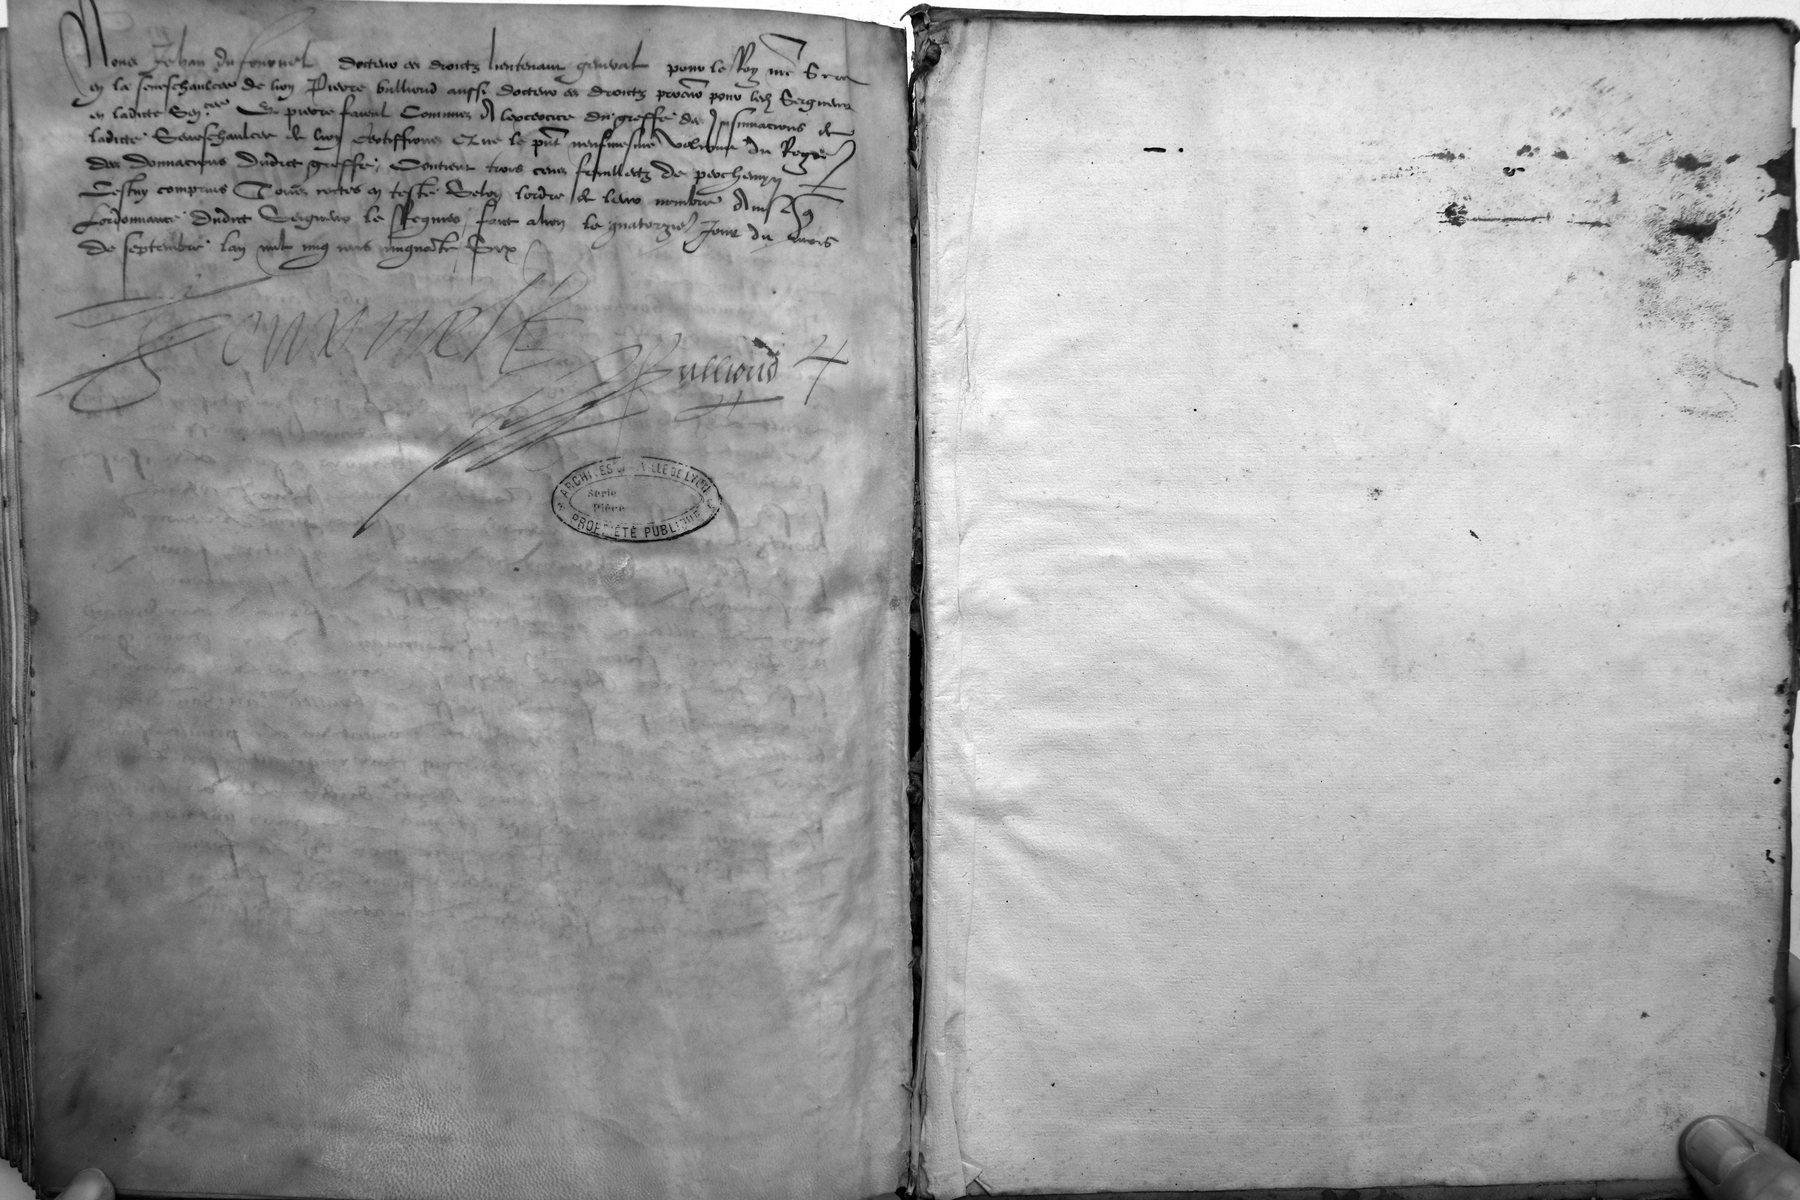 Nous Jehan du fournel docteur es droictz lieutenant general pour le Roy nre Sire
en la seneschaulcee de lyon Pierre bulliond aussi docteur es droictz procur pour ledt Seigneur
en ladicte Sen.cee Et pierre faurel Commis A lexercice du greffe des Insinuacions de
ladicte Seneschaulcee de lyon Certiffions Que le pnt neufuiesme volume du Regre
des donnacions dudict greffe, Contient trois cens feuilletz de parchemyn
Cestuy comprins Tous cottes en teste Selon lordre de leur nombre Ainsi q
lordonnance dudict Seigneur le Requiert, faict a lyon le quatorzie Jour du moys
de septembre lan mil cinq cens cinquante Six
Bulliond
ARCHIVES DE LA VILLE DE LYON
Série
Pièce
PROPRIÉTÉ PUBLIQUE